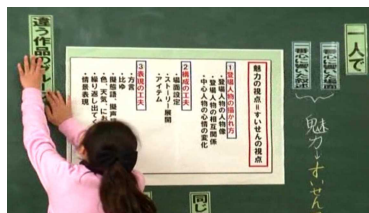 一人で
魅力→すいせん
魅力の視点＝すいせんの視点
１登場人物の描かれ方
・登場人物の人物像
・登場人物の相互関係
・中心人物の心情の変化
２構成の工夫
・場面設定
・ストーリー展開
・アイテム
３表現の工夫
・方言
・比ゆ
・擬態語、擬声
・色、天気、に
・繰り返し出て
・情景表現
違う作品のグルー
同じ